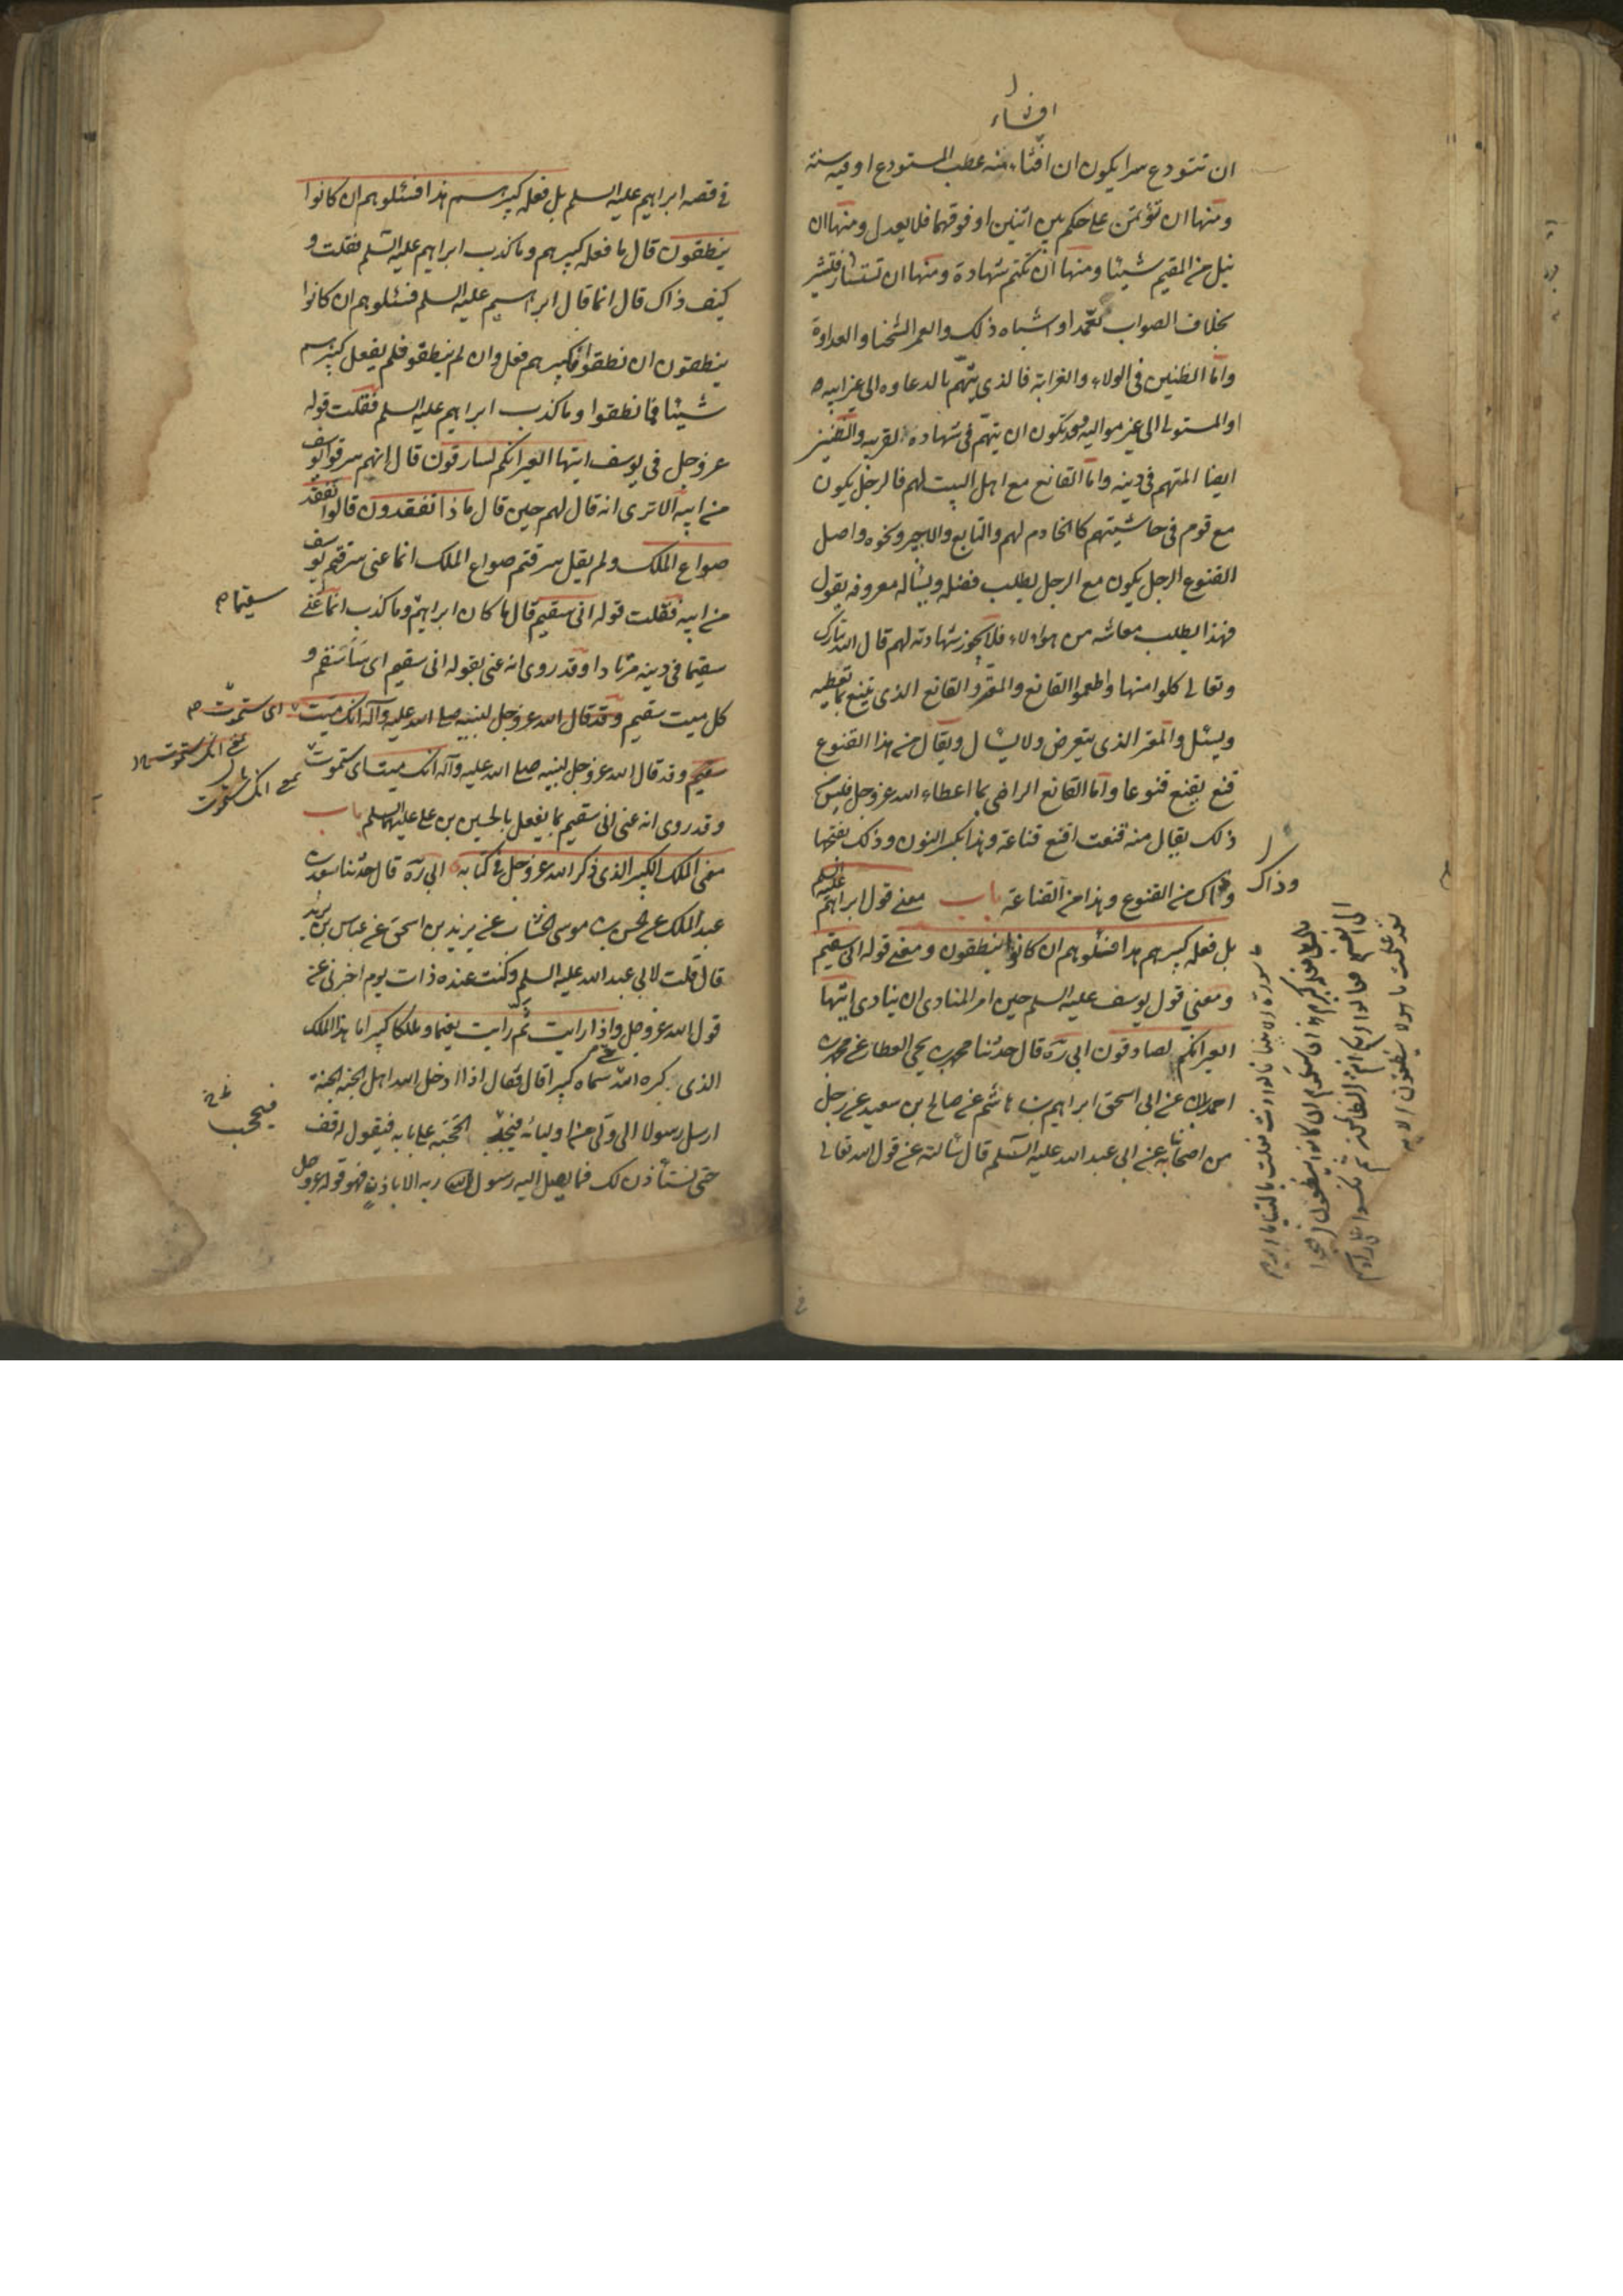 افشاء
ان تستودع سرا يكون ان افشاء منه عطب المستودع او فيه سنته
ومنها ان تؤتمن على حكم بين اثنين او فوقهما فلا يعدل ومنها ان
من المقيم شيئا ومنها ان تكتم شهادة ومنها ان تستشار فتشير
بخلاف الصواب تعمدا واشباه ذلك والغمر الشحنا والعداوة
واما الظنين فى الولاء والقرابة فالذى يتهم بالدعاوه الى غير ابيه
او المتولى الى غير مواليه وقد تكون ان يتهم فى شهادة لقريبه والظنين
ايضا المتهم فى دينه واما القانع مع اهل البيت لهم فالرجل يكون
مع قوم فى حاشيتهم كالخادم لهم والتابع والاجير ونحوه واصل
القنوع الرجل يكون مع الرجل يطلب فضله ويسأله معروفه يقول
فهذا يطلب معاشه من هولاء فلا يجوز شهادته لهم قال الله تبارك
وتعالى كلوا منها واطعموا القانع والمعتر والقانع الذى يقنع بما تعطيه
ويسئل والمعتر الذى يتعرض ولا يسأل ويقال من هذا القنوع
قنع يقنع قنوعا واما القانع الراضى بما اعطاه الله عز وجل فليس من
ذلك يقال منه قنعت اقنع قناعة وهذا بكسر النون وذلك بفتحها
وذاك من القنوع وهذا من القناعة باب معنى قول ابراهيم عليه السلم
بل فعله كبيرهم هذا فسئلوهم ان كانوا ينطقون ومعنى قوله انى سقيم
ومعنى قول يوسف عليه السلم حين امر المنادى ان ينادى ايتها
العير انكم لصادقون ابى ره قال حدثنا محمد بن يحيى العطار عن محمد بن
احمد عن ابى اسحق ابراهيم بن هاشم عن صالح بن سعيد عن رجل
من اصحابنا عن ابى عبد الله عليه السلم قال سألته عن قول الله تعالى
وذاك
فى قصه ابراهيم عليه السلم بل فعله كبيرهم هذا فسئلوهم ان كانوا
ينطقون قال ما فعله كبيرهم وما كذب ابراهيم عليه السلم فقلت و
كيف ذاك قال انما قال ابراهيم عليه السلم فسئلوهم ان كانوا
ينطقون ان نطقوا فكبيرهم فعل وان لم ينطقو فلم يفعل كبيرهم
شيئا فما نطقوا وما كذب ابراهيم عليه السلم فقلت قوله
عز وجل فى يوسف ايتها العير انكم لسارقون قال انهم سرقوا يوسف
من ابيه الا ترى انه قال لهم حين قال ماذا تفقدون قالوا نفقد
صواع الملك ولم يقل سرقتم صواع الملك انما عنى سرقتم يوسف
من ابيه فقلت قوله انى سقيم قال ما كان ابراهيم وما كذب انما عنى
سقيما
سقيما فى دينه مرتادا وقد روى انه عنى بقوله انى سقيم اى سأسقم و
كل ميت سقيم وقد قال الله عز وجل لنبيه صلى الله عليه وآله انك ميت اى ستموت
سقيم وقد قال الله عز وجل لنبيه صلى الله عليه وآله انك ميت اى ستموت
بمعنى انك ستموت
وقد روى انه عنى انى سقيم بما يفعل بالحسين بن على عليهما السلم باب
معنى الملك الكبير الذى ذكر الله عز وجل فى كتابه ابى ره قال حدثنا سعد بن
عبد الملك عن الحسن بن موسى الخشاب عن يزيد بن اسحق عن عباس بن يزيد
قال قلت لابى عبد الله عليه السلم وكنت عنده ذات يوم اخبرنى عن
قول الله عز وجل واذا رايت ثم رايت نعيما وملكا كبيرا ما هذا الملك
الذى كبره الله حتى سماه كبيرا قال فقال اذا ادخل الله اهل الجنة الجنة
ارسل رسولا الى ولى من اوليائه فيجد الحجبة على بابه فيقول له قف
فيحجب
حتى نستأذن لك فما يصل اليه رسول الله ربه الا باذن فهو قوله عز وجل